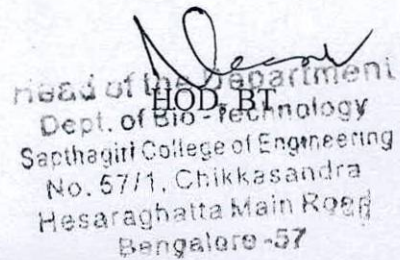 Head of the Department
HOD, BT
Dept. of Bio-Technology
Sapthagiri College of Engineering
No. 57/1, Chikkasandra
Hesaraghatta Main Road
Bengalore-57